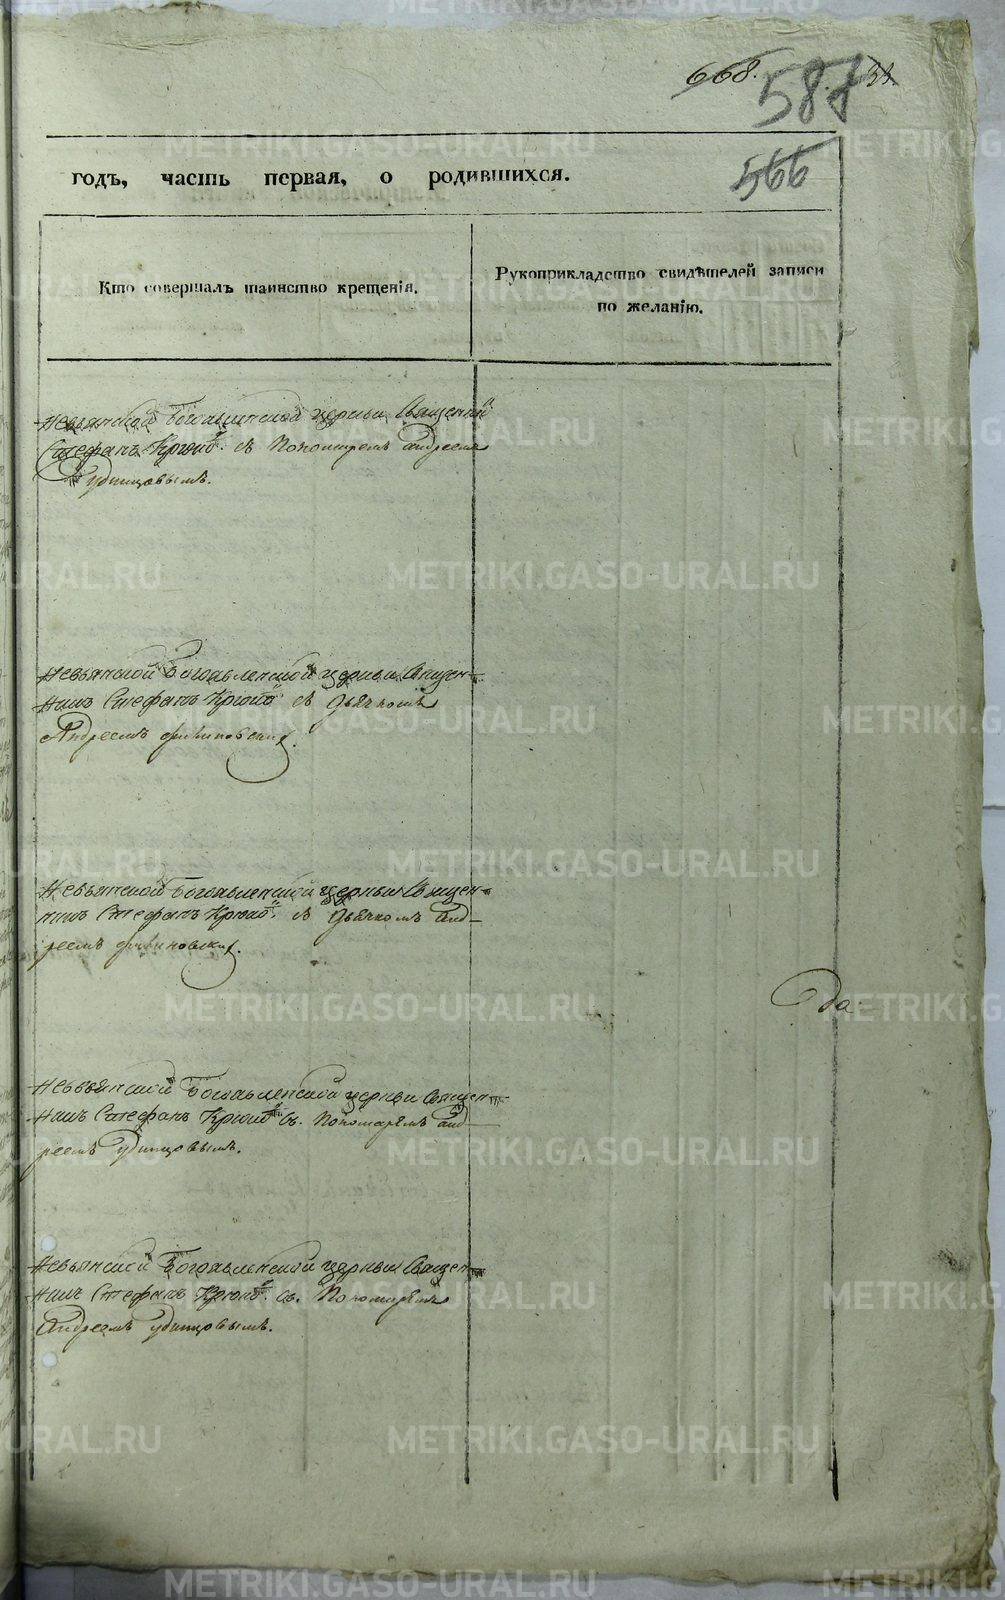 668.
587
566
годъ, часть первая, о родившихся.
Кто совершалъ таинство крещенія.
Рукоприкладство свидѣтелей записи
по желанію.
Невьянской Богоявленской церкви Священни
Стефанъ Крюко съ Пономаремъ Андреемъ
Удинцовымъ.
Невьянской Богоявленской церкви Священ-
никъ Стефанъ Крюко съ Дьячкомъ
Андреемъ
Невьянской Богоявленской церкви Священ-
никъ Стефанъ Крюко съ Дьячкомъ Анд-
реемъ
да
Невьянской Богоявленской церкви Священ-
никъ Стефанъ Крюко съ. Пономаремъ Анд-
реемъ Удинцовымъ.
Невьянской Богоявленской церкви Священ-
никъ Стефанъ Крюко съ. Пономаремъ
Андреемъ Удинцовымъ.
METRIKI.GASO-URAL.RU